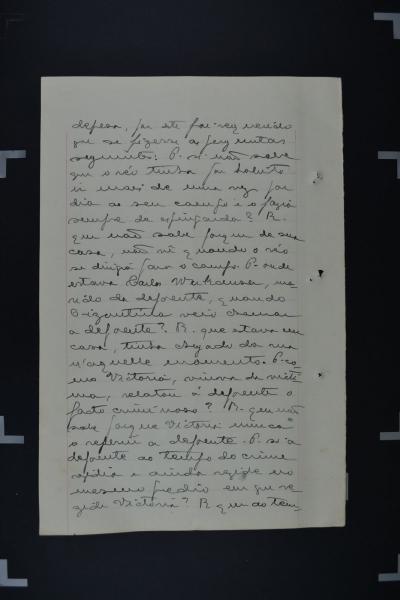 defesa, por este foi requerido
que se fizesse as perguntas
seguintes: P. si não sabe
que o réo tinha por habito
ir mais de uma vez por
dia ao seu campo e o fazia
sempre de espingarda? R.
que não sabe porque de sua
casa, não vê quando o réo
se dirigia para o campo. P. onde
estava Carlo, ma-
rido da depoente, quando
veio chamar
a depoente? R. que estava em
casa, tinha chegado da rua
n'aquelle momento. P. co-
mo Victoria, viuva da victi-
ma, relatou á depoente o
facto criminoso? R. que não
sabe porque Victoria nunca
o referiu a depoente. P. si a
depoente ao tempo do crime
residia e ainda reside no
mesmo predio em que re-
side Victoria? R. que ao tem-